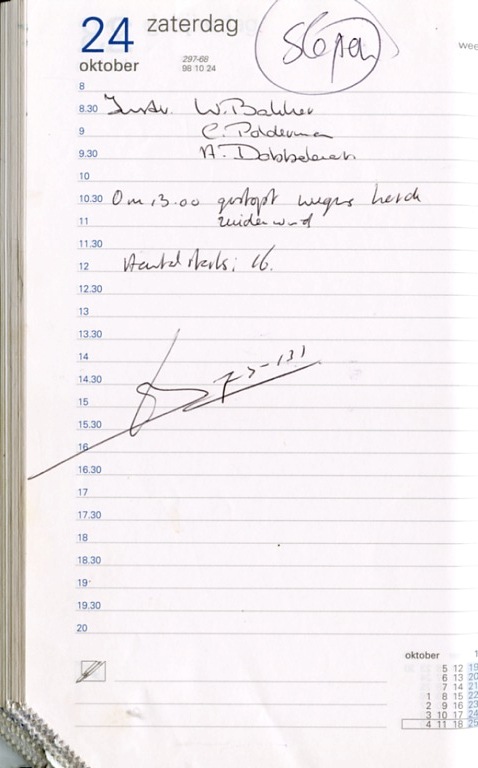 24 zaterdag
oktober
297-68
98 10 24
wee
8
8.30 Instr. W. Bakker
9 C. Polderman
9.30 A. Dobbelaar
10
10.30 Om 13.00 gestopt wegens harde
11 zuidenwind
11.30
12 Aantal starts: 16.
12.30
13
13.30
14
14.30
15
15.30
16
16.30
17
17.30
18
18.30
19
19.30
20
oktober 1
5 12 19
6 13 20
7 14 21
1 8 15 22
2 9 16 23
3 10 17 24
4 11 18 25